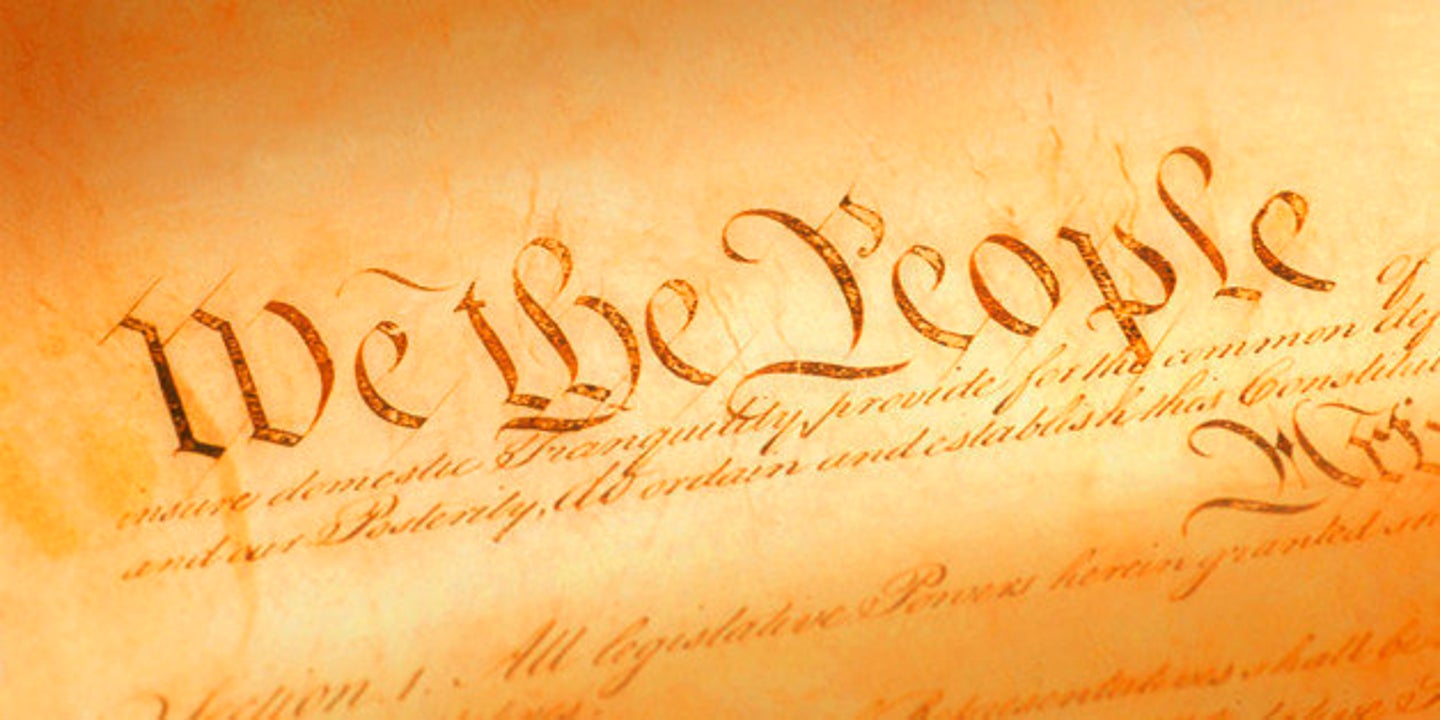 We the People
of
insure domestic Tranquility, provide for the common def
and our Posterity, do ordain and establish this Constitu
Section 1. All legislative Powers herein granted
Representatives shall be